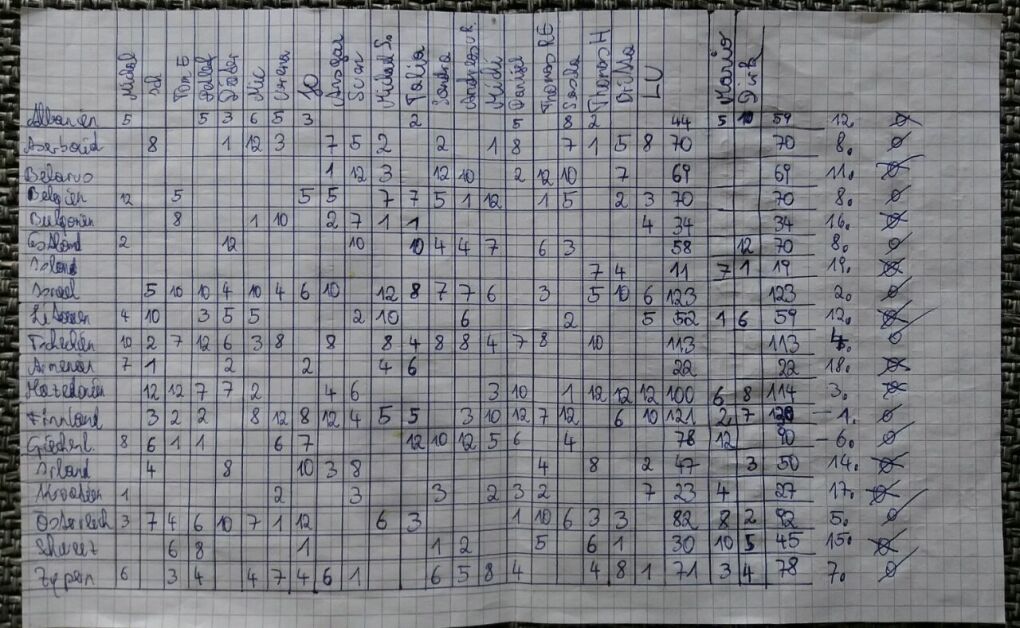 Michael Tom E Mic Jo Ansgar Sven Michael S. Tabia Sandra Andreas R. Heidi Daniel Thomas RE Sascha Thomas H LU Mario Dirk
Albanien 5 5 3 6 5 3 2 5 8 2 44 5 10 59 12.
Aserbaid 8 1 12 3 7 5 2 2 1 8 7 1 5 8 70 70 8.
Belarus 1 12 3 12 10 2 12 10 7 69 69 11.
Belgien 12 5 5 5 7 7 5 1 12 1 5 2 3 70 70 8.
Bulgarien 8 1 10 2 7 1 1 4 34 34 16.
Estland 2 12 10 10 4 4 7 6 3 58 12 70 8.
Island 7 4 11 7 1 19 19.
Israel 5 10 10 4 10 4 6 10 12 8 7 7 6 3 5 10 6 123 123 2.
Litauen 4 10 3 5 5 2 10 6 2 5 52 1 6 59 12.
Tschechien 10 2 7 12 6 3 8 8 8 4 8 8 4 7 8 10 113 113 4.
Armenien 7 1 2 2 4 6 22 22 18.
Mazedonien 12 12 7 7 2 4 6 3 10 1 12 12 12 100 6 8 114 3.
Finnland 3 2 2 8 12 8 12 4 5 5 3 10 12 7 12 6 10 121 2 7 - 1.
Griechenl. 8 6 1 1 6 7 12 10 12 5 6 4 78 12 90 - 6.
Irland 4 8 10 3 8 4 8 2 47 3 50 14.
Kroatien 1 2 3 3 2 3 2 7 23 4 27 17.
Österreich 3 7 4 6 10 7 1 12 6 3 1 10 6 3 3 82 8 2 92 5.
Schweiz 6 8 1 1 2 5 6 1 30 10 5 45 15.
Zypern 6 3 4 4 7 4 6 1 6 5 8 4 4 8 1 71 3 4 78 7.